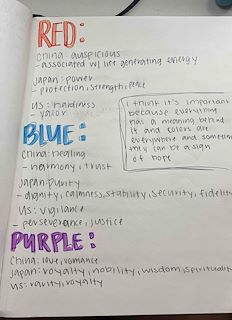 RED:
China: auspicious
- associated w/ life generating energy
Japan: power
- protection, strength, peace
US: hardiness
- valor
i think it's important
because everything
has a meaning behind
it and colors are
everywhere and sometimes
they can be a sign
of hope
BLUE:
China: healing
- harmony, trust
Japan: purity
- dignity, calmness, stability, security, fidelity
US: vigilance
- perseverance, justice
PURPLE:
China: love, romance
Japan: royalty, nobility, wisdom, spirituality
US: rarity, royalty